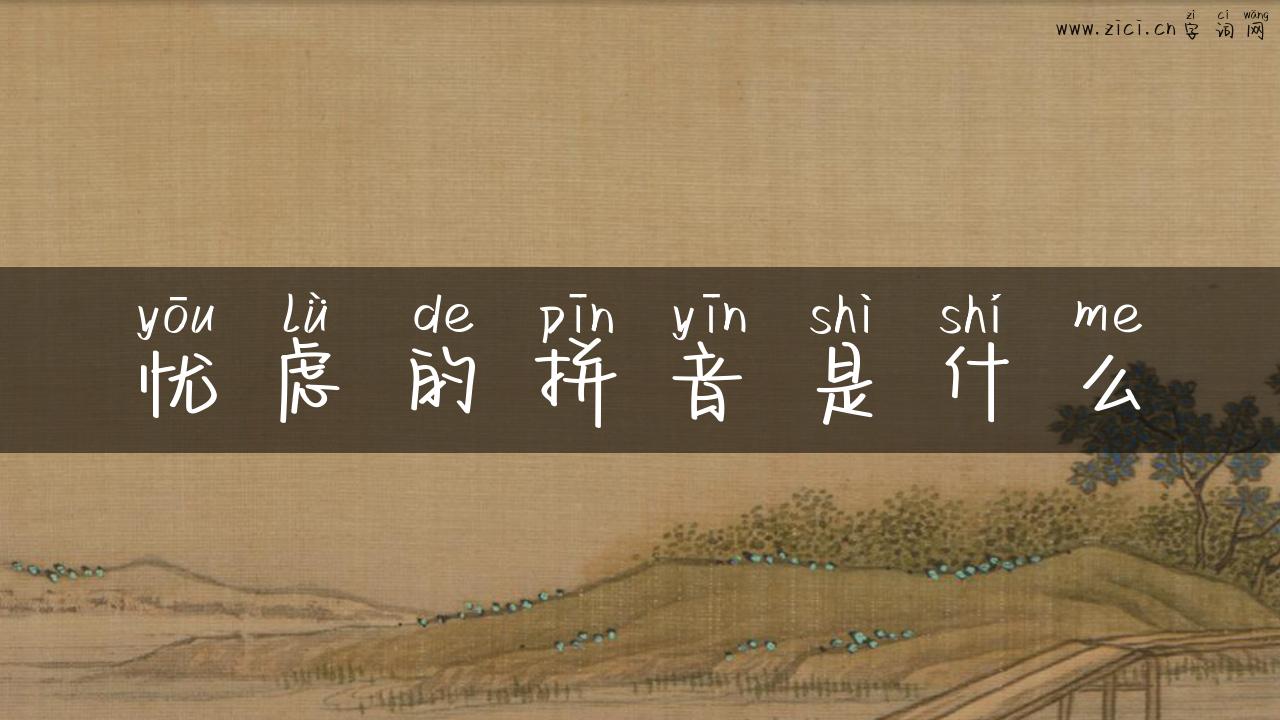 zì cí wǎng
www.zici.cn字词网
yōu lǜ de pīn yīn shì shí me
忧虑的拼音是什么